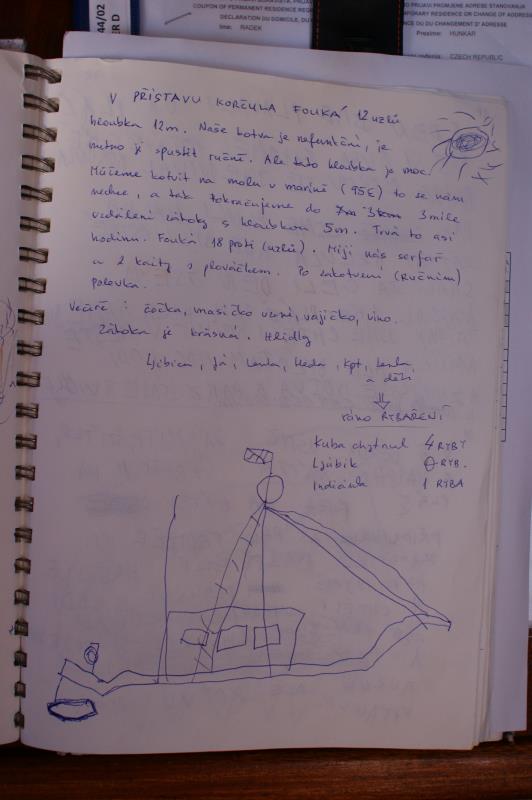 44/02
ER D
COUPON OF PERMANENT RESIDENCE
DECLARATION DU DOMICILE, DU
Ime: RADEK
PRIJAVI PROMJENE ADRESE STANOVANJA
TEMPORARY RESIDENCE OR CHANGE OF ADDRESS
OU DU CHANGEMENT D'ADRESSE
Prezime: HUNKAR
CZECH REPUBLIC
V PŘÍSTAVU KORČULA FOUKÁ 12 uzlů
hloubka 12m. Naše kotva je nefunkční, je
nutno ji spustit ručně. Ale tato hloubka je moc.
Můžeme kotvit na molu v marině (95€) to se nám
nechce, a tak pokračujeme do 3 míle
vzdálení zátoky s hloubkou 5m. Trvá to asi
hodinu. Fouká 18 proti (uzlů). Míjí nás serfař
a 2 kaity s plováčkem. Po zakotvení (RUČNÍM)
polévka.
Večeře: čočka, masíčko uzené, vajíčko, víno.
Zátoka je krásná. Hlídky
Ljibica, Já, Lenka, Heda, Kpt, Lenka
a děti
ráno RYBAŘENÍ
Kuba chytnul 4 RYBY
Ljubik 0 RYB.
1 RYBA